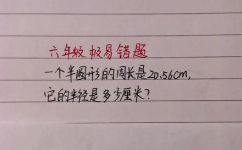 六年级极易错题
一个半圆形的周长是20.56cm,
它的半径是多少厘米?